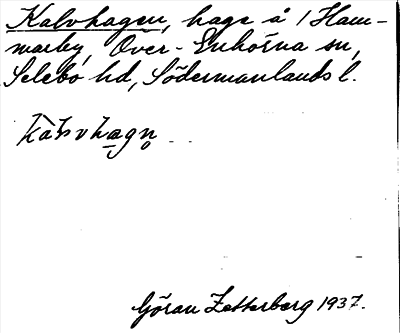 Kalvhagen, hage å 1 Ham-
marby, Över-Enhörna sn,
Selebo hd, Södermanlands l.
Göran Zetterberg 1937.